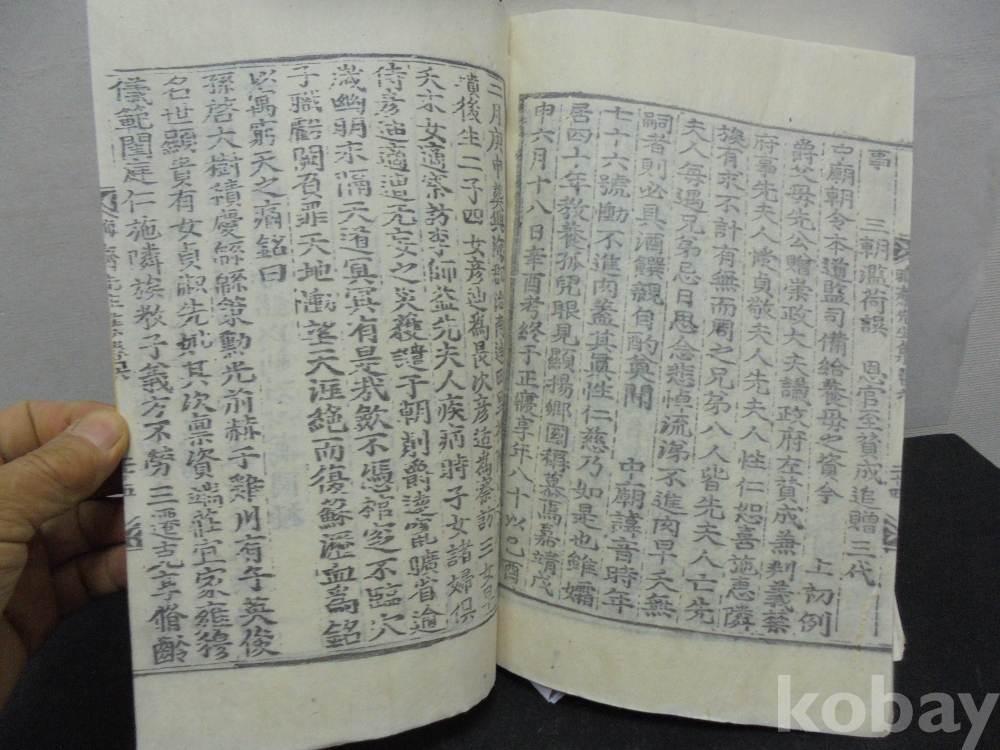 事 三朝濫荷誤 恩官至贊成追贈三代
中廟朝令本道監司備給養母之資今 上初例
爵父母先公贈崇政大夫議政府左贊成兼判義禁
府事先夫人贈貞敬夫人先夫人性仁恕喜施惠隣
族有求不計有無而周之兄弟八人皆先夫人亡先
夫人每遇兄弟忌日思念悲悼流涕不進肉早夭無
嗣者則必具酒饌親自酌奠聞 中廟諱音時年
七十六號慟不進肉蓋其眞性仁慈乃如是也雖孀
居四十年敎養孤兒眼見顯揚鄕國稱慕焉嘉靖戊
申六月十八日辛酉考終于正寢享年八十以己酉
二月庚申葬興海郡治南達田
後生二子四女彦迪爲長次彦适爲察訪三女
夭末女適察訪李仲益先夫人疾病時子女諸婦俱
侍彦迪適遭无妄之災獲譴于朝削爵逬竄曠省逾
歲幽明永隔天道冥冥有是哉斂不憑棺窆不臨穴
子職虧闕負罪天地慟望天涯絶而復蘇瀝血爲銘
以寓窮天之痛銘曰
孫啓大樹積慶緜緜策勳光前赫于雞川有子英俊
名世顯貴有女貞淑先妣其次稟資端莊宜家雍穆
儀範閨庭仁施隣族敎子義方不勞三遷克享脩齡
kobay